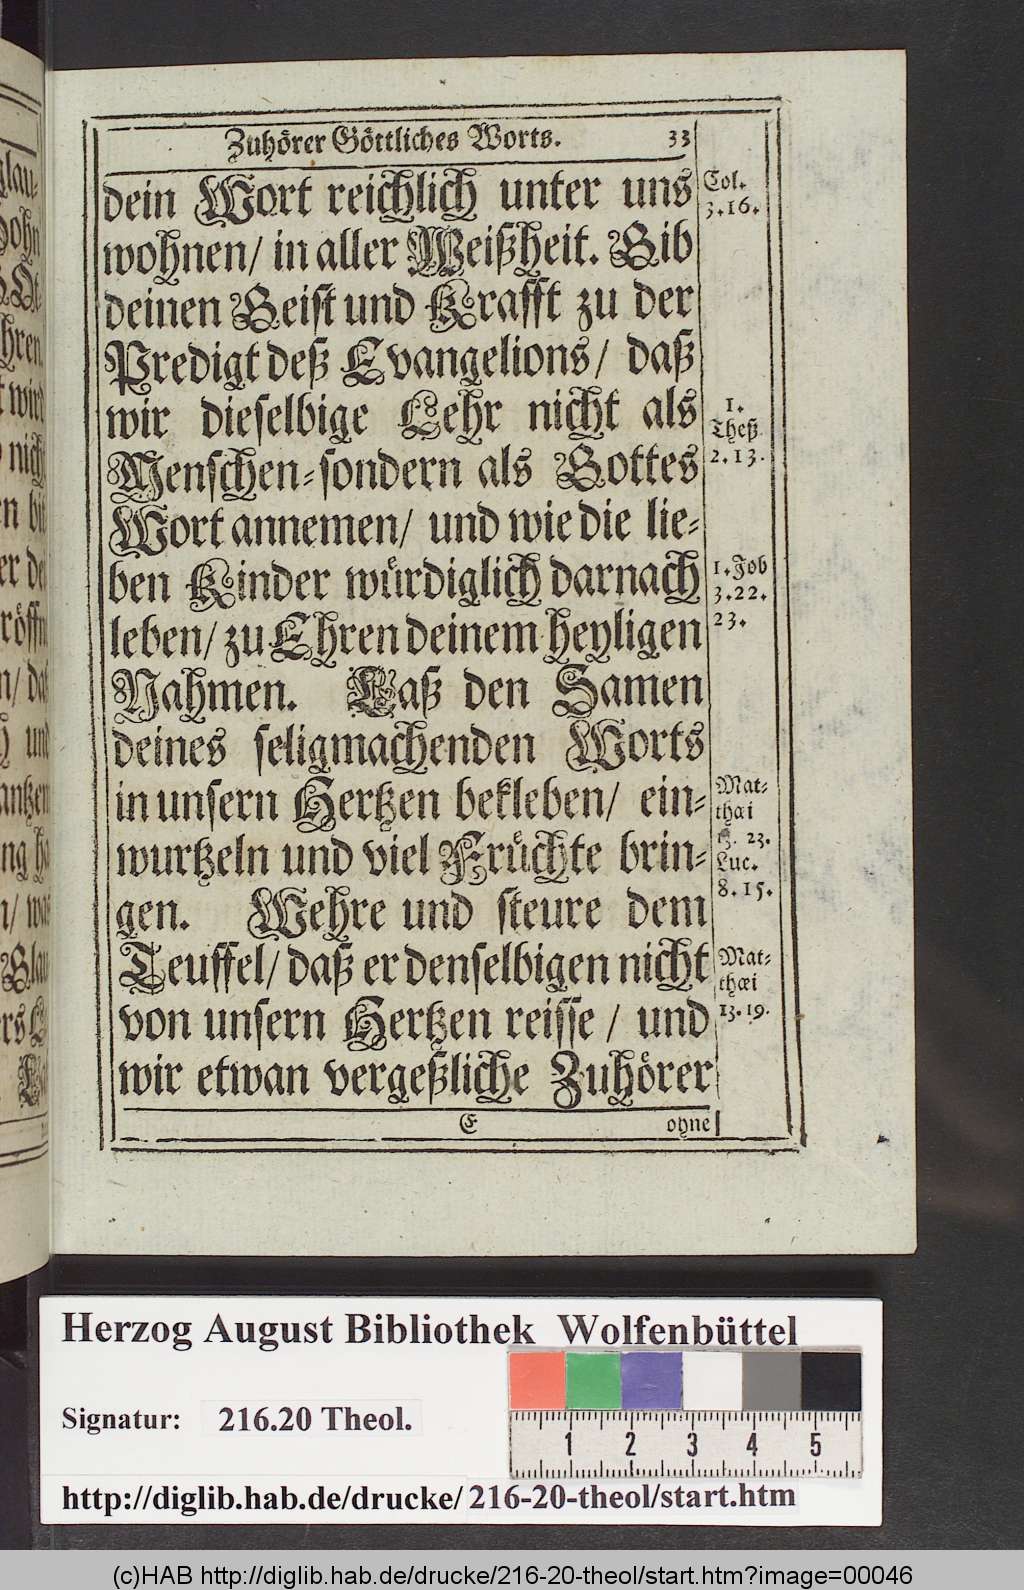 Zuhörer Göttliches Worts. 33
dein Wort reichlich unter uns
wohnen/ in aller Weißheit. Gib
deinen Geist und Krafft zu der
Predigt deß Evangelions/ daß
wir dieselbige Lehr nicht als
Menschen-sondern als Gottes
Wort annemen/ und wie die lie-
ben Kinder würdiglich darnach
leben/ zu Ehren deinem heyligen
Nahmen. Laß den Samen
deines seligmachenden Worts
in unsern Hertzen bekleben/ ein-
wurtzeln und viel Früchte brin-
gen. Wehre und steure dem
Teuffel/ daß er denselbigen nicht
von unsern Hertzen reisse / und
wir etwan vergeßliche Zuhörer
E ohne
Col.
3.16.
1.
Theß
2.13.
1.Joh
3.22.
23.
Mat-
thæi
13. 23.
Luc.
8.15.
Mat-
thæi
13.19.
Herzog August Bibliothek Wolfenbüttel
Signatur: 216.20 Theol.
1 2 3 4 5
http://diglib.hab.de/drucke/216-20-theol/start.htm
(c)HAB http://diglib.hab.de/drucke/216-20-theol/start.htm?image=00046